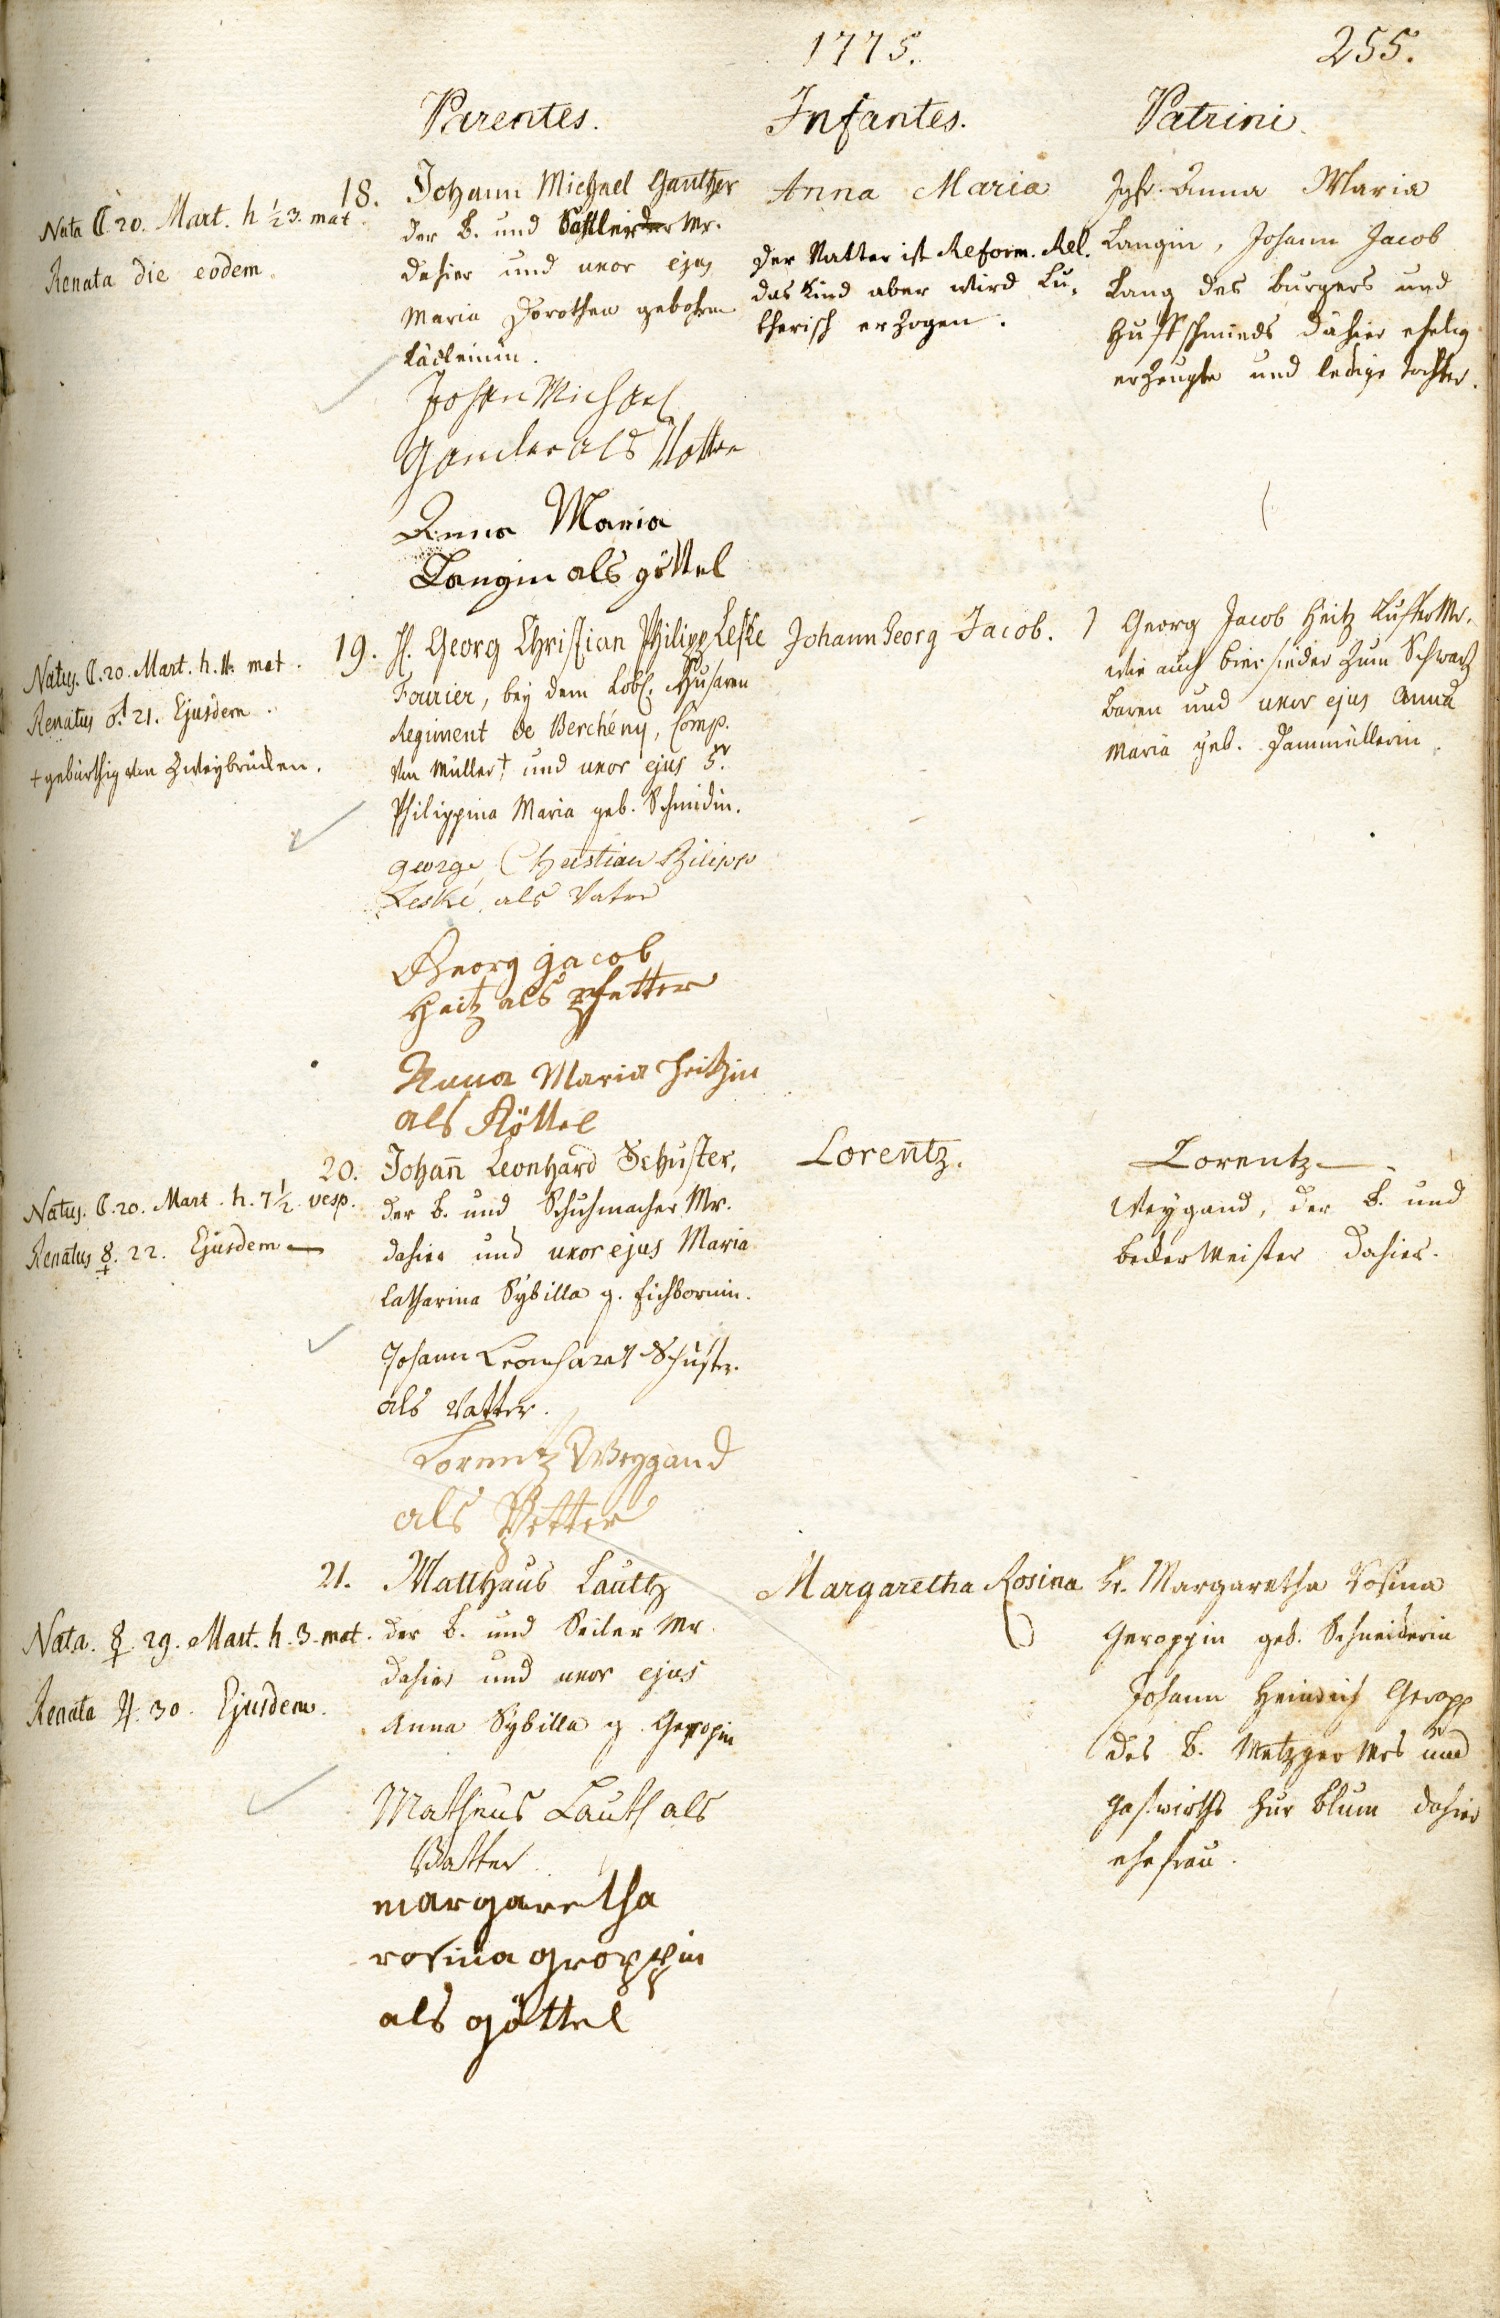 1775.
255.
Parentes.
Infantes.
Patrini.
Nata ☾. 20. Mart. h ½ 3. mat.
Renata die eodem.
18. Johann Michael Ganther
der B. und Mr.
dahier und uxor ejus
Maria Dorothea gebohrne
Johan Michael
Gander als Vatter
Anna Maria
Langin als göttel
Anna Maria
Der Vatter ist Reform. Rel.
das Kind aber wird Lu-
therisch erzogen.
Jgfr. Anna Maria
Langin, Johann Jacob
Lang des burgers und
Huffschmieds dahier ehelig
erzeugte und ledige tochter.
Natus. ☾. 20. Mart. h. 11. mat.
Renatus ♂. 21. Ejusdem.
+ gebürthig von Zweybrücken.
19. H. Georg Christian Philipp Leske
Fourier, bey dem Löbl. Husaren
Regiment de Berchény, Comp.
von Müller † und uxor ejus
Philippina Maria geb. Schmidin.
george Christian Filipp
Leske, als Vater
Georg jacob
Heitz als Pfetter
Anna Maria Heitzin
als Göttel
Johann Georg Jacob.
Georg Jacob Heitz Küffer Mr.
wie auch biersieder zum Schwartz
Bären und uxor ejus Anna
Maria geb. Dammüllerin.
Natus. ☾. 20. Mart. h. 7 ½ vesp.
Renatus ☿. 22. Ejusdem —
20. Johan̄ Leonhard Schuster,
der B. und Schuhmacher Mr.
dahier und uxor ejus Maria
Catharina Sybilla g. Eichbornin.
Johann Leonhart Schuster.
als Vatter.
Lorentz Weygand
als Pfetter
Lorentz.
Lorentz
Weygand, der B. und
becker Meister dahier.
Nata. ☿. 29. Mart. h. 3. mat.
Renata ♃. 30. Ejusdem.
21. Matthäus Lauth
der B. und Seiler Mr.
dahier und uxor ejus
Anna Sybilla g. Geropin
Matheus Lauth als
Vatter.
margaretha
rosina groppin
als göttel
Margaretha Rosina
Fr. Margaretha Rosina
Geroppin geb. Schneiderin
Johann Heinrich Geropp
des B. Metzger Mrs und
Gastwirths zur Blum dahier
ehefrau.